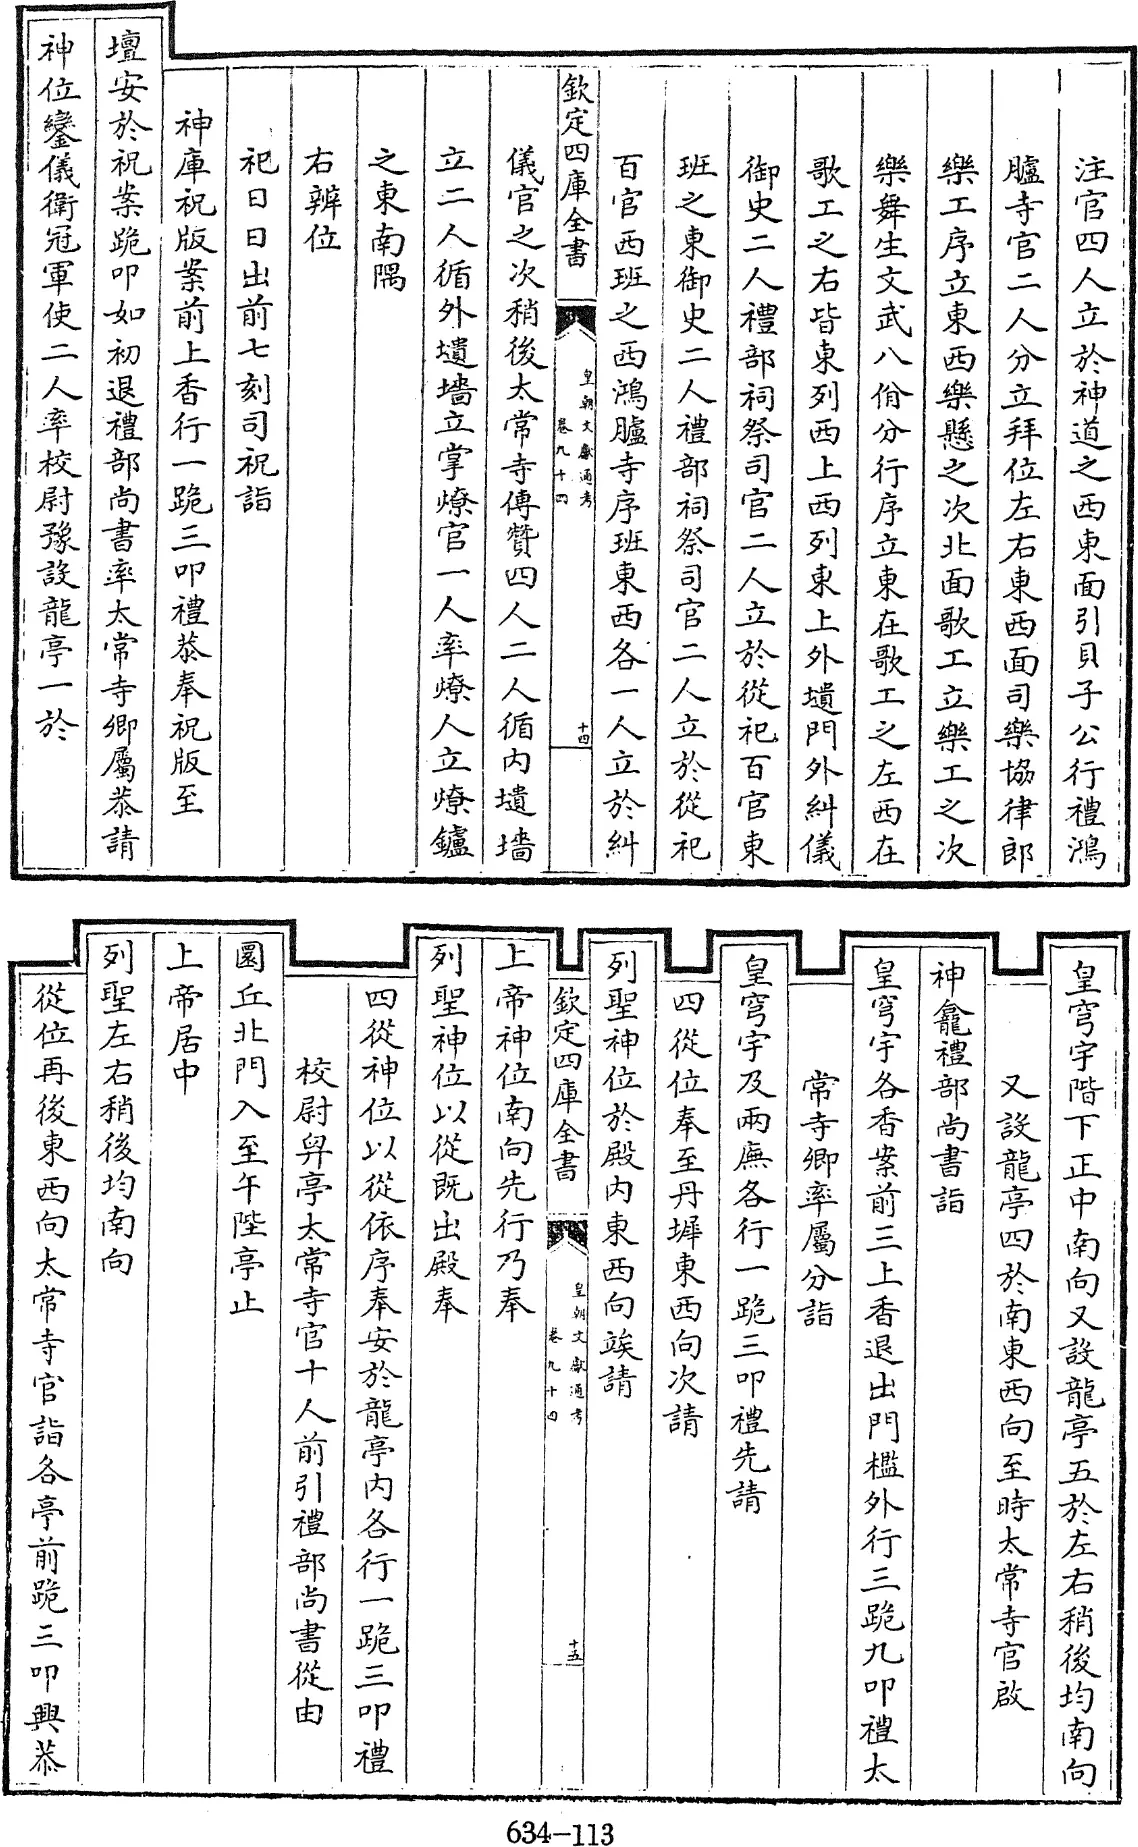 注官四人立於神道之西東面引貝子公行禮鴻
臚寺官二人分立拜位左右東西面司樂協律郎
樂工序立東西樂懸之次北面歌工立樂工之次
樂舞生文武八佾分行序立東在歌工之左西在
歌工之右皆東列西上西列東上外壝門外糾儀
御史二人禮部祠祭司官二人立於從祀百官東
班之東御史二人禮部祠祭司官二人立於從祀
百官西班之西鴻臚寺序班東西各一人立於糾
欽定四庫全書
皇朝文獻通考
卷九十四
十四
儀官之次稍後太常寺傳贊四人二人循內壝墻
立二人循外壝墻立掌燎官一人率燎人立燎鑪
之東南隅
右辨位
祀日日出前七刻司祝詣
神庫祝版案前上香行一跪三叩禮恭奉祝版至
壇安於祝案跪叩如初退禮部尚書率太常寺卿屬恭請
神位鑾儀衛冠軍使二人率校尉豫設龍亭一於
皇穹宇階下正中南向又設龍亭五於左右稍後均南向
又設龍亭四於南東西向至時太常寺官啟
神龕禮部尚書詣
皇穹宇各香案前三上香退出門檻外行三跪九叩禮太
常寺卿率屬分詣
皇穹宇及兩廡各行一跪三叩禮先請
四從位奉至丹墀東西向次請
列聖神位於殿內東西向竢請
欽定四庫全書
皇朝文獻通考
卷九十四
十五
上帝神位南向先行乃奉
列聖神位以從既出殿奉
四從神位以從依序奉安於龍亭內各行一跪三叩禮
校尉舁亭太常寺官十人前引禮部尚書從由
圜丘北門入至午陛亭止
上帝居中
列聖左右稍後均南向
從位再後東西向太常寺官詣各亭前跪三叩興恭
634-113